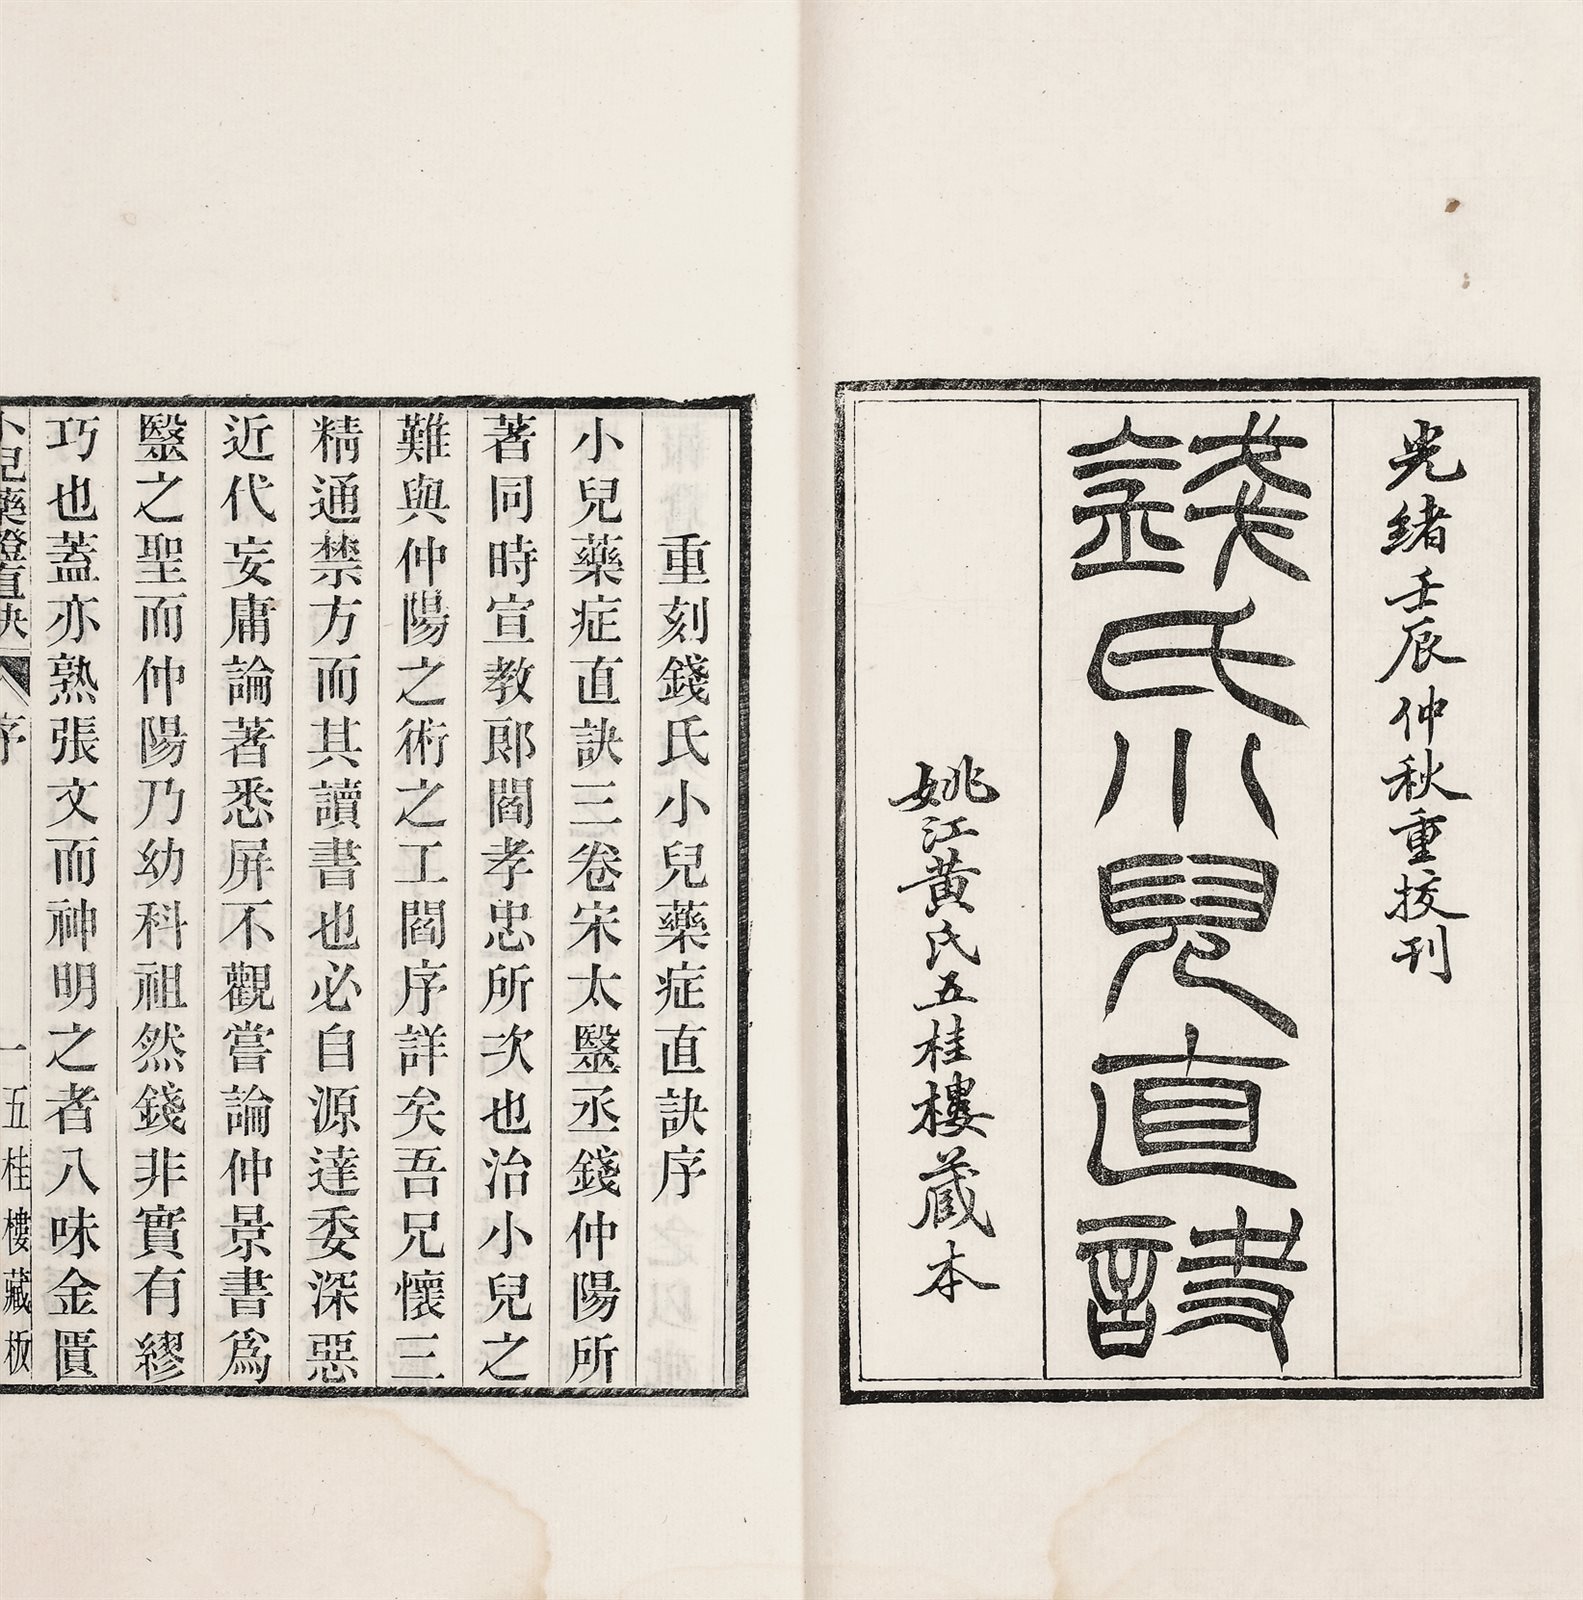 光緒壬辰仲秋重挍刊
錢氏小兒直訣
姚江黃氏五桂樓藏本
重刻錢氏小兒藥症直訣序
小兒藥症直訣三卷宋太醫丞錢仲陽所
著同時宣教郎閻孝忠所次也治小兒之
難與仲陽之術之工閻序詳矣吾兄懷三
精通禁方而其讀書也必自源達委深惡
近代妄庸論著悉屏不觀嘗論仲景書為
毉之聖而仲陽乃幼科祖然錢非實有繆
巧也蓋亦熟張文而神明之者八味金匱
小兒藥證直訣 序 一 五桂樓藏板